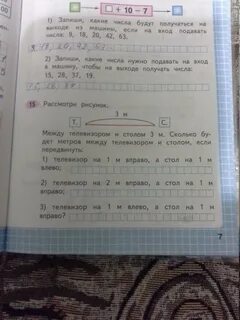 □ + 10 − 7
1) Запиши, какие числа будут получаться на
выходе из машины, если на вход подавать
числа: 9, 18, 20, 42, 63.
9, 18, 20, 42, 63
2) Запиши, какие числа нужно подавать на вход
в машину, чтобы на выходе получать числа:
15, 28, 37, 19.
15 Рассмотри рисунок.
3 м
Т. С.
Между телевизором и столом 3 м. Сколько бу-
дет метров между телевизором и столом, если
передвинуть:
1) телевизор на 1 м вправо, а стол на 1 м
влево;
2) телевизор на 2 м вправо, а стол на 1 м
влево;
3) телевизор на 1 м влево, а стол на 1 м
вправо?
7